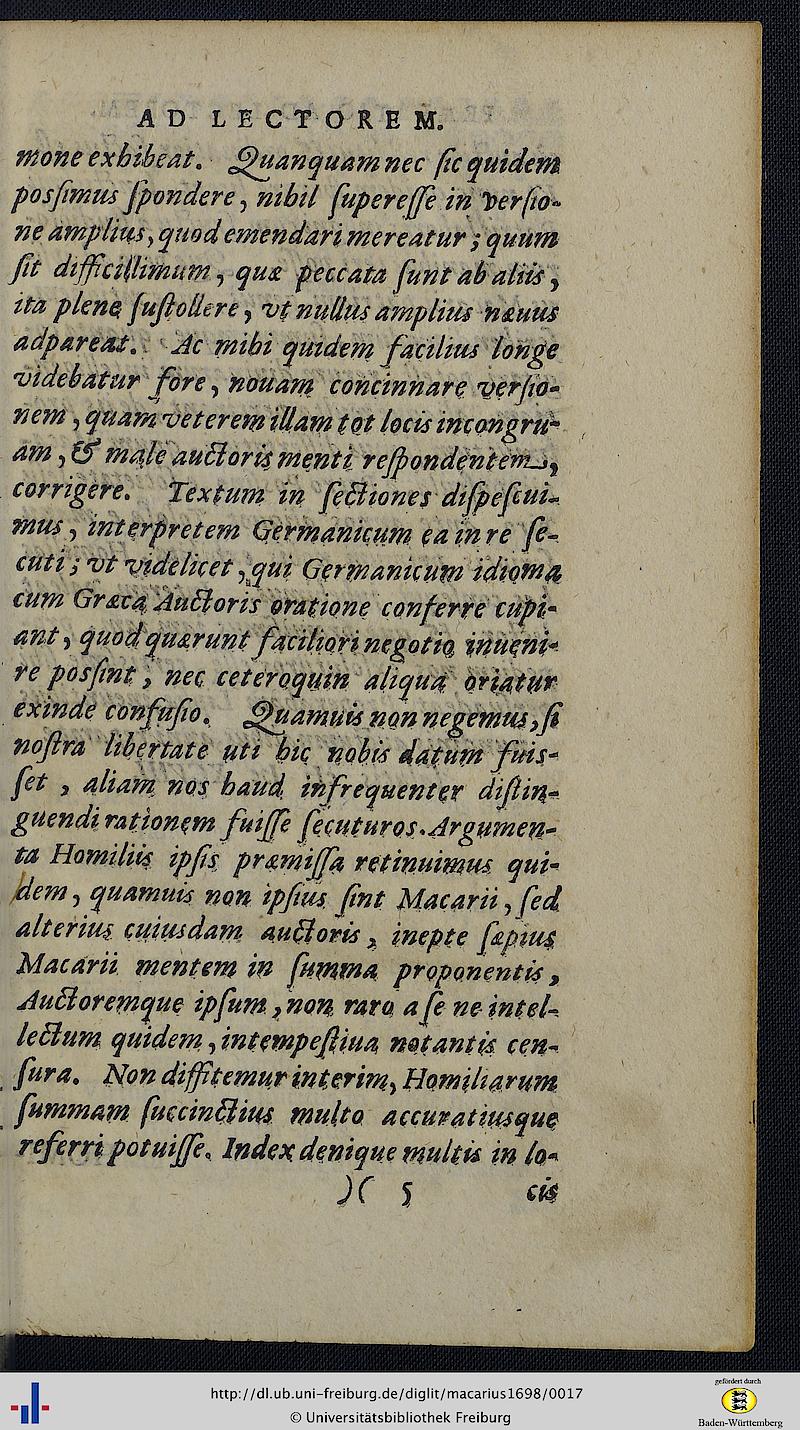 AD LECTOREM.
mone exhibeat. Quanquam nec ſic quidem
posſimus ſpondere, nihil ſupereſſe in verſio-
ne amplius, quod emendari mereatur; quum
ſit difficillimum, quæ peccata ſunt ab aliis,
ita plene ſuſtollere, vt nullus amplius næuus
adpareat. Ac mihi quidem facilius longe
videbatur fore, nouam concinnare verſio-
nem, quam veterem illam tot locis incongru-
am, & male auctoris menti reſpondentem,
corrigere. Textum in ſectiones diſpeſcui-
mus, interpretem Germanicum ea in re ſe-
cuti; vt videlicet, qui Germanicum idioma
cum Græca Auctoris oratione conferre cupi-
ant, quod quærunt faciliori negotio inueni-
re posſint, nec ceteroquin aliqua oriatur
exinde confuſio. Quamuis non negemus, ſi
noſtra libertate uti hic nobis datum fuis-
ſet, aliam nos haud infrequenter diſtin-
guendi rationem fuiſſe ſecuturos. Argumen-
ta Homiliis ipſis præmiſſa retinuimus qui-
dem, quamuis non ipſius ſint Macarii, ſed
alterius cuiusdam auctoris, inepte ſæpius
Macarii mentem in ſumma proponentis,
Auctoremque ipſum, non raro a ſe ne intel-
lectum quidem, intempeſtiua notantis cen-
ſura. Non diffitemur interim, Homiliarum
ſummam ſuccinctius multo accuratiusque
referri potuiſſe. Index denique multis in lo-
)( 5 cis
http://dl.ub.uni-freiburg.de/diglit/macarius1698/0017
© Universitätsbibliothek Freiburg
gefördert durch
Baden-Württemberg